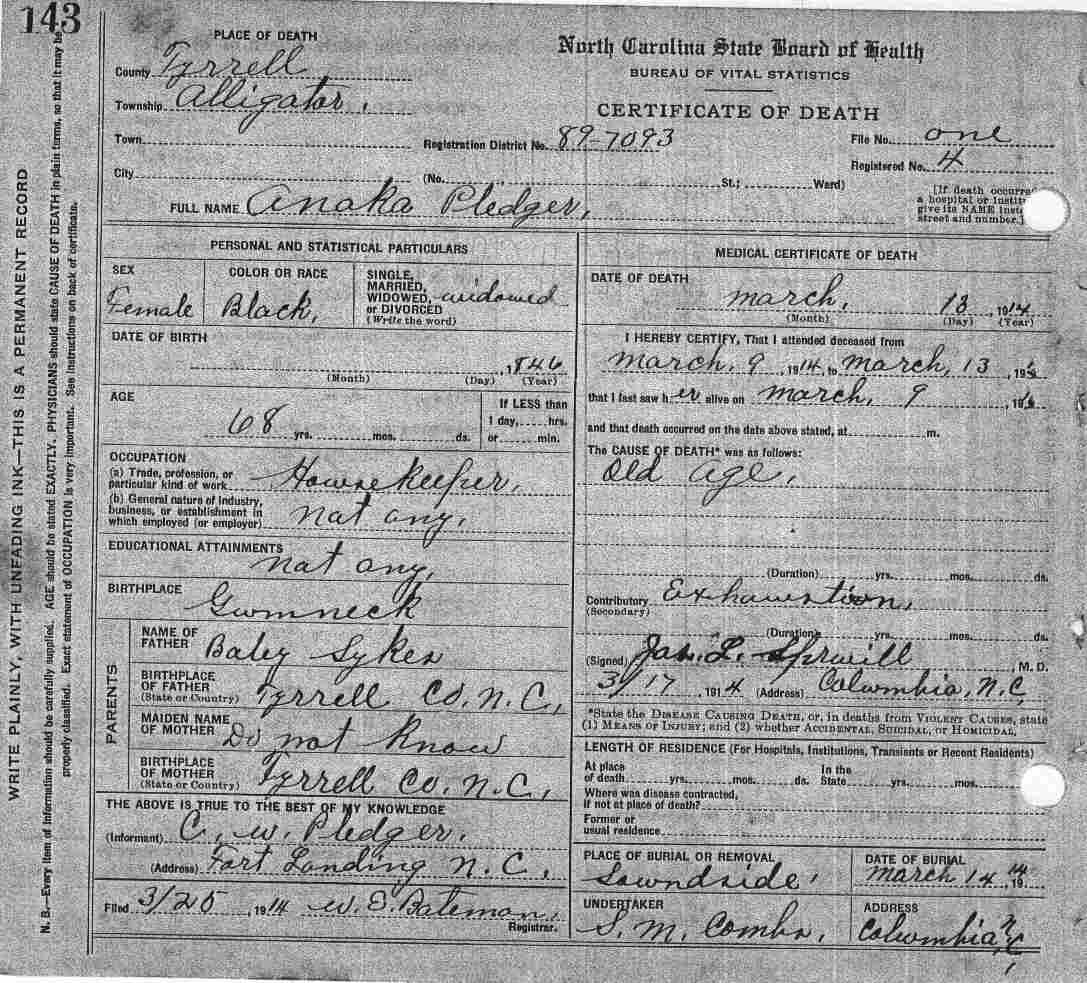 143
WRITE PLAINLY, WITH UNFADING INK—THIS IS A PERMANENT RECORD
N. B.—Every item of information should be carefully supplied. AGE should be stated EXACTLY. PHYSICIANS should state CAUSE OF DEATH in plain terms, so that it may be
properly classified. Exact statement of OCCUPATION is very important. See instructions on back of certificate.
PLACE OF DEATH
County Tyrrell
Township Alligator.
Town
City
North Carolina State Board of Health
BUREAU OF VITAL STATISTICS
CERTIFICATE OF DEATH
Registration District No. 89-7093
File No. one
Registered No. 4
(No. St.; Ward)
[If death occurre
a hospital or institu
give its NAME inste
street and number.]
FULL NAME Anaka Pledger,
PERSONAL AND STATISTICAL PARTICULARS
SEX
Female
COLOR OR RACE
Black,
SINGLE,
MARRIED,
WIDOWED, widowed
or DIVORCED
(Write the word)
DATE OF BIRTH
, 846
(Month) (Day) (Year)
AGE
68 yrs. mos. ds.
If LESS than
1 day, hrs.
or min.
OCCUPATION
(a) Trade, profession, or
particular kind of work Housekeeper,
(b) General nature of industry,
business, or establishment in
which employed (or employer) nat any.
EDUCATIONAL ATTAINMENTS
nat any,
BIRTHPLACE
Gumneck
PARENTS
NAME OF
FATHER Baley Sykes
BIRTHPLACE
OF FATHER
(State or Country) Tyrrell Co. N. C,
MAIDEN NAME
OF MOTHER Do not Know
BIRTHPLACE
OF MOTHER
(State or Country) Tyrrell Co. N. C,
THE ABOVE IS TRUE TO THE BEST OF MY KNOWLEDGE
(Informant) C. W. Pledger.
(Address) Fort Landing N. C,
Filed 3/25, 1914 W. S. Bateman,
Registrar.
MEDICAL CERTIFICATE OF DEATH
DATE OF DEATH
march, 13, 1914
(Month) (Day) (Year)
I HEREBY CERTIFY, That I attended deceased from
march, 9, 1914, to march, 13, 191
that I last saw h er alive on march, 9, 191
and that death occurred on the date above stated, at m.
The CAUSE OF DEATH* was as follows:
Old age,
(Duration) yrs. mos. ds.
Contributory Exhaustion,
(Secondary)
(Duration) yrs. mos. ds.
(Signed) Jas. L. Spruill, M. D.
3/17, 1914 (Address) Columbia, N. C,
*State the DISEASE CAUSING DEATH, or, in deaths from VIOLENT CAUSES, state
(1) MEANS OF INJURY; and (2) whether ACCIDENTAL, SUICIDAL, or HOMICIDAL.
LENGTH OF RESIDENCE (For Hospitals, Institutions, Transients or Recent Residents)
At place
of death yrs. mos. ds.
In the
State yrs. mos.
Where was disease contracted,
if not at place of death?
Former or
usual residence
PLACE OF BURIAL OR REMOVAL
Sowndside,
DATE OF BURIAL
march 14, 1914
UNDERTAKER
S. M. Combs,
ADDRESS
Columbia, N. C,